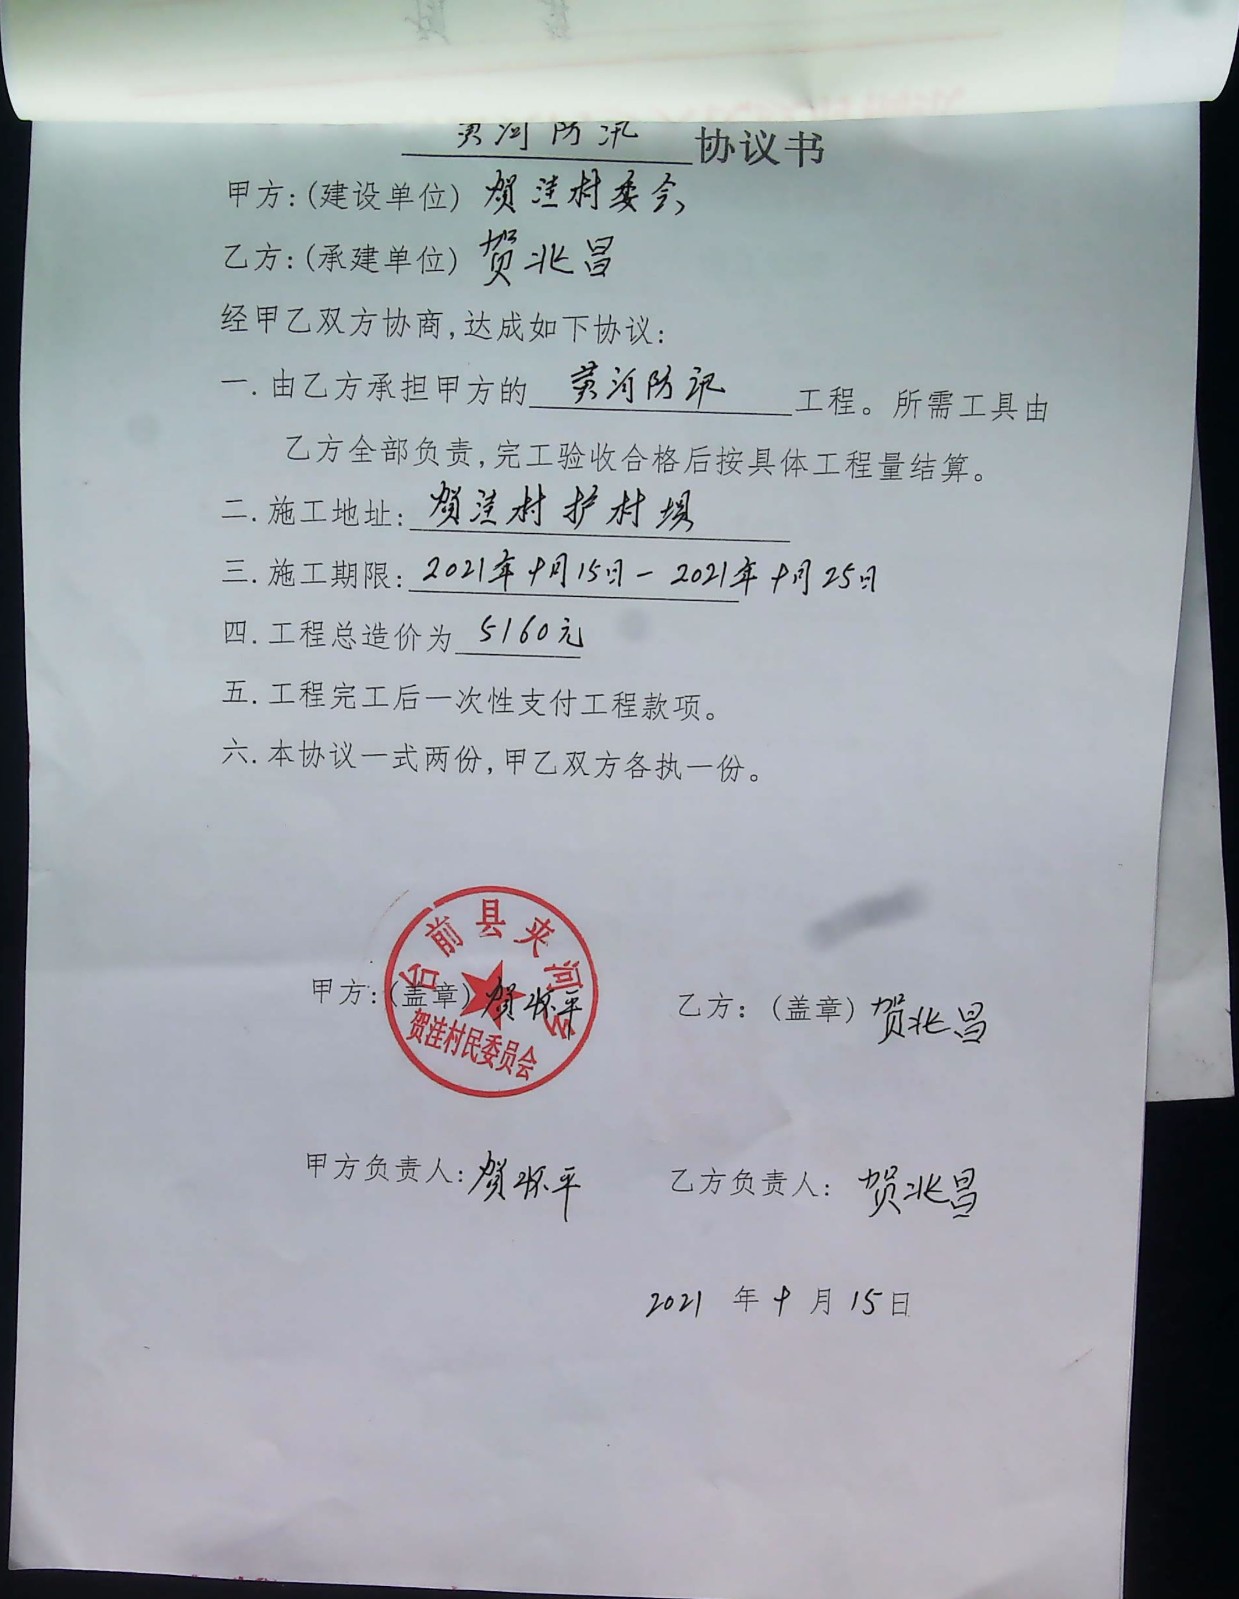 黄河防汛 协议书
甲方:(建设单位) 贺洼村委会
乙方:(承建单位) 贺兆昌
经甲乙双方协商,达成如下协议:
一.由乙方承担甲方的 黄河防汛 工程。所需工具由
乙方全部负责,完工验收合格后按具体工程量结算。
二.施工地址: 贺洼村护村坝
三.施工期限: 2021年10月15日-2021年10月25日
四.工程总造价为 5160元
五.工程完工后一次性支付工程款项。
六.本协议一式两份,甲乙双方各执一份。
台前县夹河乡
贺洼村民委员会
甲方:(盖章) 贺怀平
乙方:(盖章) 贺兆昌
甲方负责人: 贺怀平
乙方负责人: 贺兆昌
2021 年 十 月 15日